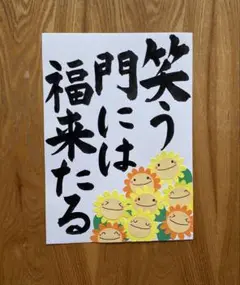 笑う
門には
福来たる